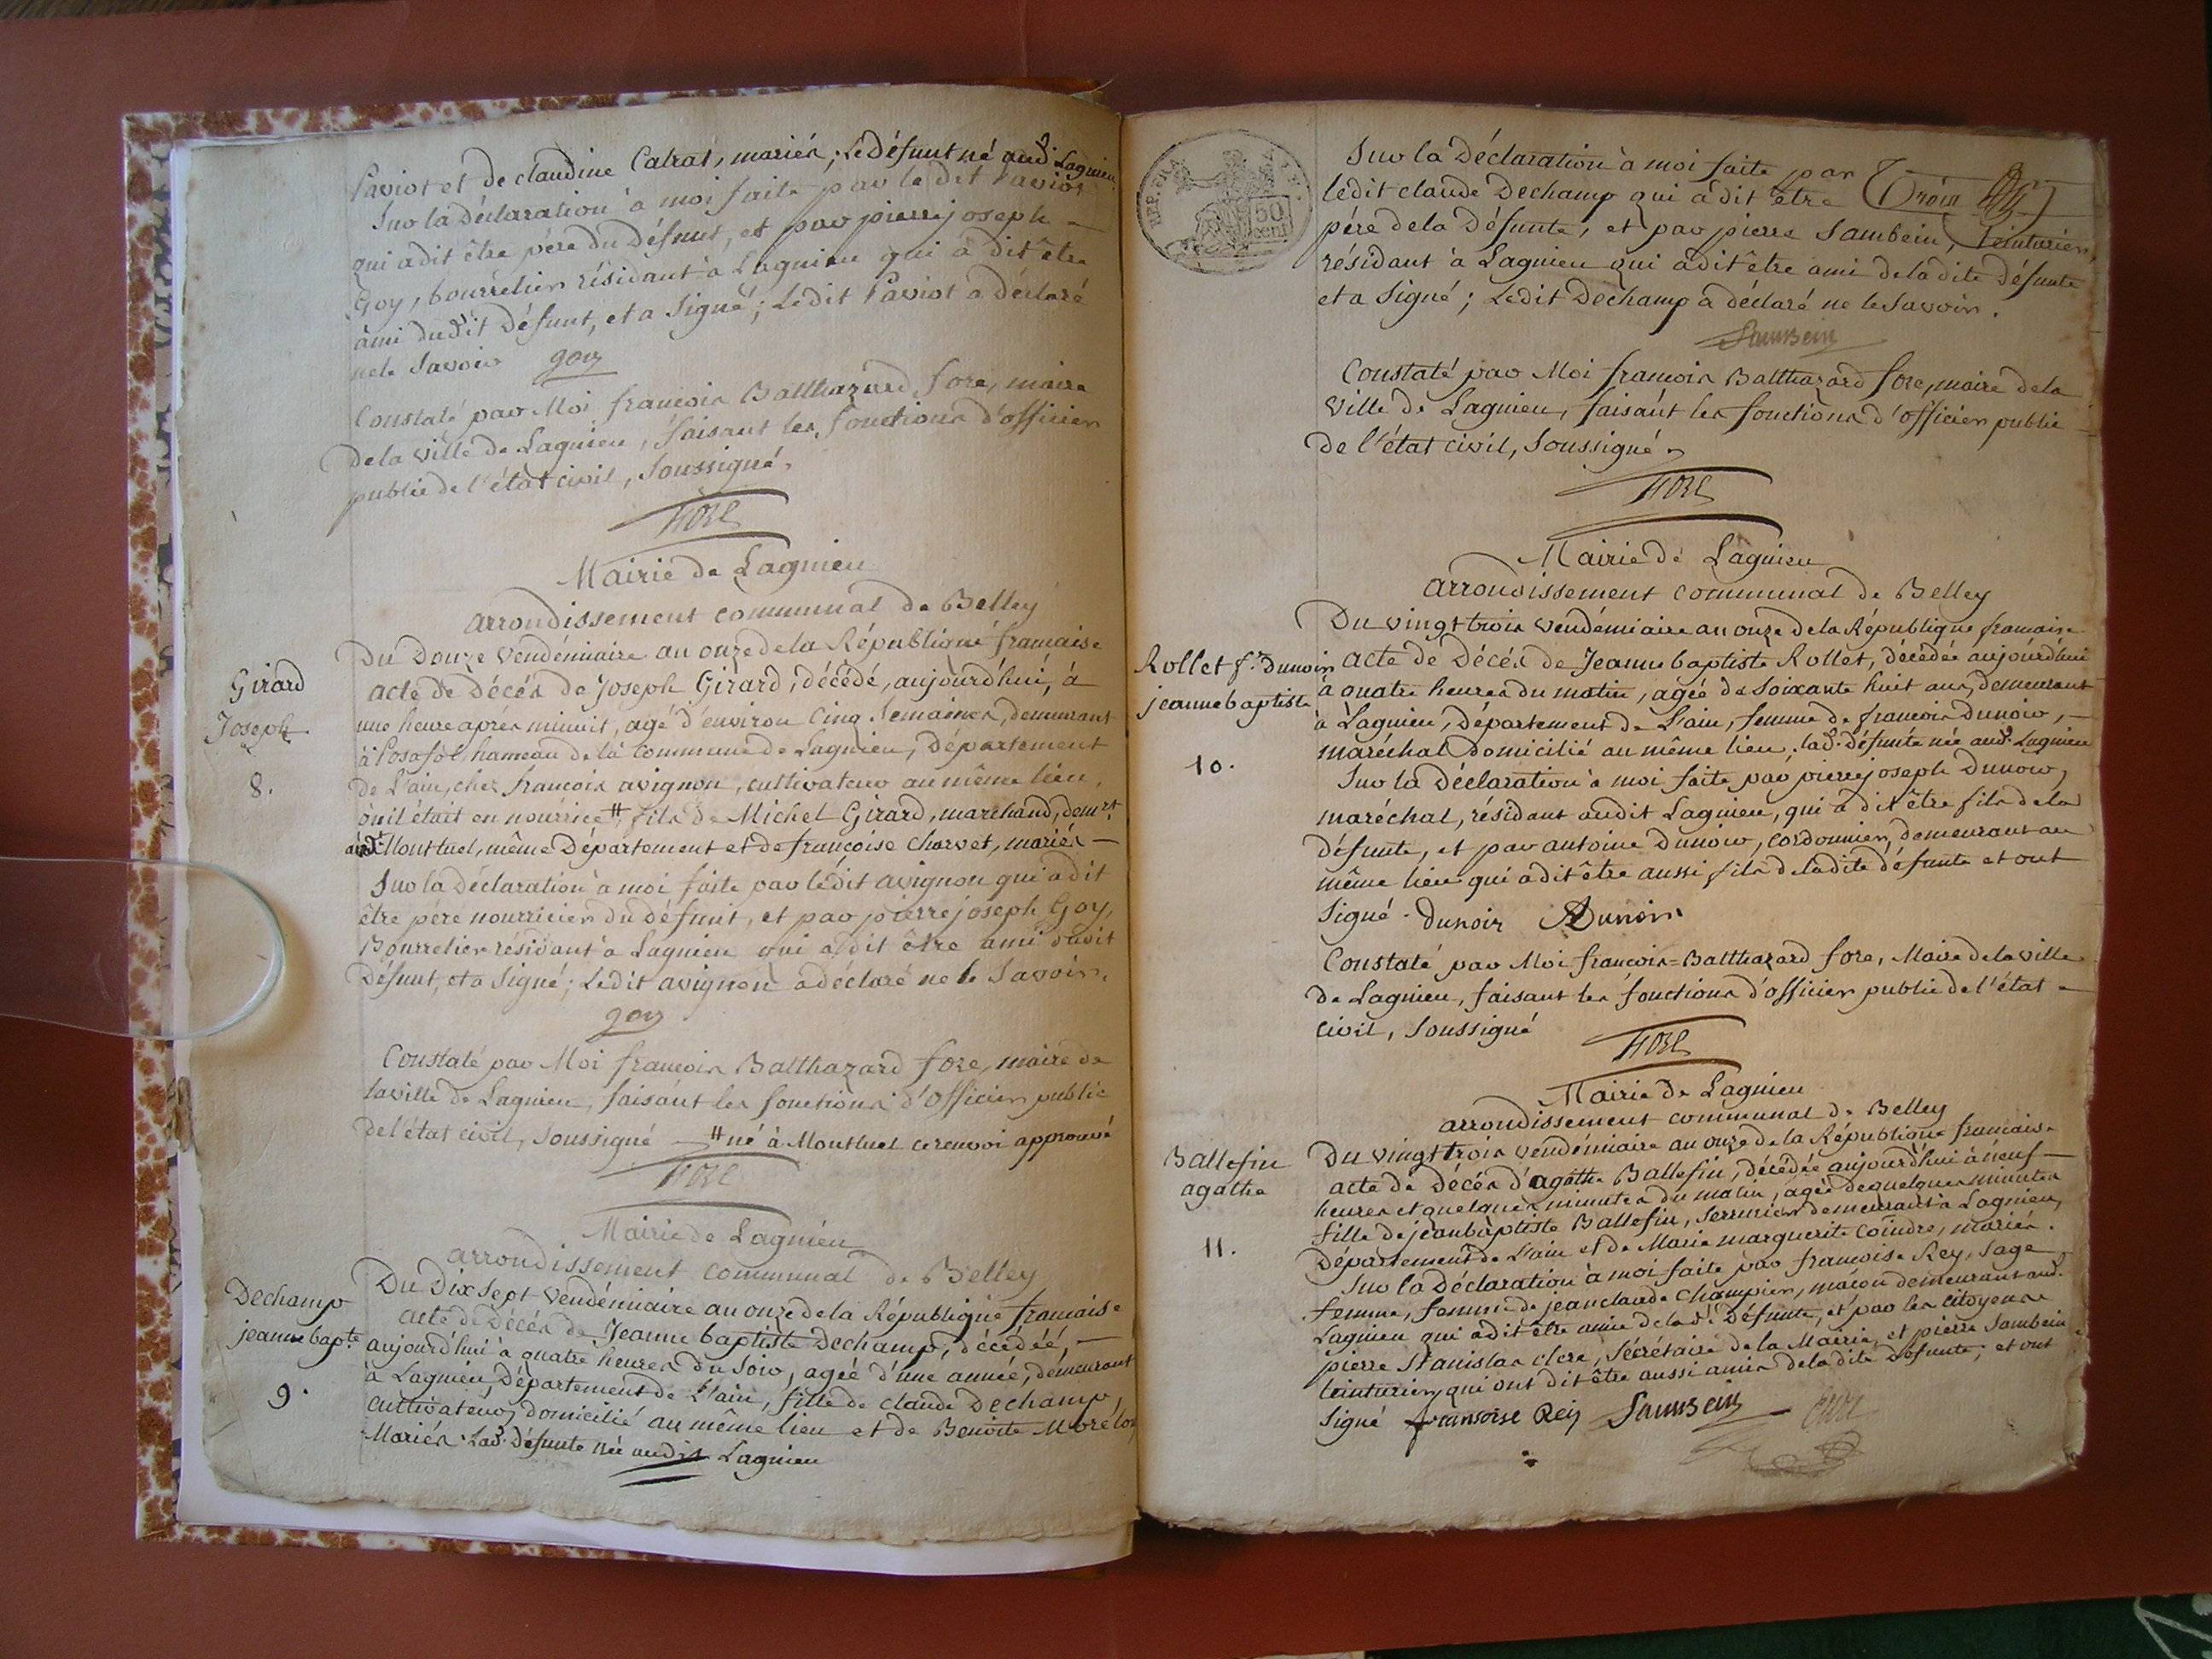 Paviot et de claudine Calrat, mariés; Le Défunt né aud.t Lagnieu.
Sur la déclaration à moi faite par le dit Paviot
qui a dit être père du Défunt, et par pierre joseph
Goy, bourrelier résidant à Lagnieu qui à dit être
ami dudit Défunt, et a Signé; Ledit Paviot a déclaré
ne le Savoir goy
Constaté par Moi françois Balthazard fore, maire
de la ville de Lagnieu, faisant les fonctions d'officier
public de l'état civil, Soussigné.
FORE
Mairie de Lagnieu
arrondissement communal de Belley
Girard
Joseph
8.
Du Douze Vendémiaire an onze de la République française
acte de Décès de Joseph Girard, décédé, aujourd'hui, à
une heure après minuit, agé d'environ Cinq Semaines, demeurant
à Posafol hameau de la commune de Lagnieu, Département
de L'ain, chez françois avignon, cultivateur au même lieu,
ou il était en nourrice # fils de Michel Girard, marchand, dem.t
à Montluel, même Département et de françoise Charvet, mariés —
Sur la Déclaration à moi faite par ledit avignon qui a dit
être père nourricier du Défunt, et par pierre joseph Goy,
Bourrelier résidant à Lagnieu qui a dit être ami dudit
Défunt, et a Signé; Ledit avignon a déclaré ne le Savoir.
goy
Constaté par Moi françois Balthazard fore, maire de
la ville de Lagnieu, faisant les fonctions d'Officier public
de l'état civil, Soussigné — # né à Montluel ce renvoi approuvé
FORE
Mairie de Lagnieu
arrondissement communal de Belley
Dechamp
jeanne bap.te
9.
Du Dix Sept Vendémiaire an onze de la République française
acte de Décès de Jeanne baptiste Dechamp, décédée, —
aujourd'hui à quatre heures du Soir, agée d'une année, demeurant
à Lagnieu, Département de L'ain, fille de claude Dechamp,
cultivateur, domicilié au même lieu et de Benoite
Mariés. Lad.e Défunte née audit Lagnieu
REP. FRA.
50
cent
Sur la Déclaration à moi faite par
ledit claude Dechamp qui a dit être Trois
père de la Défunte, et par pierre Sambein, teinturier,
résidant à Lagnieu qui a dit être ami de ladite Défunte
et a Signé; Ledit Dechamp a déclaré ne le Savoir.
Sambein
Constaté par Moi françois Balthazard fore, maire de la
Ville de Lagnieu, faisant les fonctions d'officier public
de l'état civil, Soussigné.
FORE
Mairie de Lagnieu
arrondissement communal de Belley
Rollet f.e Dunoir
jeanne baptiste
10.
Du vingt trois vendémiaire an onze de la République française
acte de Décès de Jeanne baptiste Rollet, décédée aujourd'hui
à quatre heures du matin, agée de Soixante huit ans, demeurant
à Lagnieu, Département de L'ain, femme de françois Dunoir, —
maréchal domicilié au même lieu. lad.e défunte née aud.t Lagnieu
Sur la Déclaration à moi faite par pierre joseph Dunoir,
maréchal, résidant audit Lagnieu, qui a dit être fils de la
défunte, et par antoine Dunoir, cordonnier, demeurant au
même lieu qui a dit être aussi fils de ladite défunte et ont
Signé. Dunoir ADunoir
Constaté par Moi françois=Balthazard fore, Maire de la ville
de Lagnieu, faisant les fonctions d'officier public de l'état
civil, Soussigné
FORE
Mairie de Lagnieu
arrondissement communal de Belley
Ballefin
agathe
11.
Du vingt trois vendémiaire an onze de la République française
acte de Décès d'agathe Ballefin, décédée aujourd'hui à neuf —
heures et quelques minutes du matin, agée de quelques minutes
fille de jean baptiste Ballefin, Serrurier demeurant à Lagnieu,
Département de L'ain et de Marie marguerite Coindre, mariés.
Sur la Déclaration à moi faite par françoise Rey, Sage
femme, femme de jean claude Champier, maçon demeurant aud.t
Lagnieu qui a dit être amie de lad.e Défunte, et par les citoyens
pierre Stanislas clerc, Sécrétaire de la Mairie, et pierre Sambein
teinturier, qui ont dit être aussi amis de la dite Défunte; et ont
Signé fransoise Rey Sambein